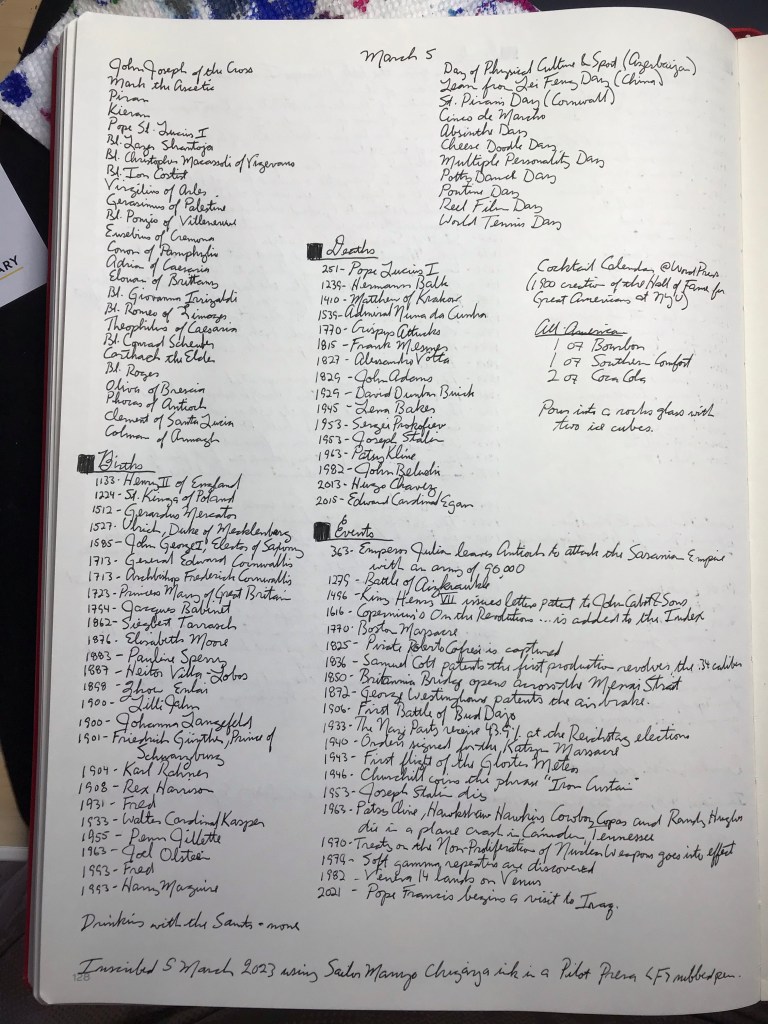 March 5
John Joseph of the Cross
Mark the Ascetic
Piran
Kieran
Pope St. Lucius I
Bl. Lazer Shantoja
Bl. Christopher Macassoli of Vigevano
Bl. Ion Costist
Virgilius of Arles
Gerasimus of Palestine
Bl. Ponzio of Villeneuve
Eusebius of Cremona
Conon of Pamphylia
Adrian of Caesaria
Elowan of Brittany
Bl. Giovanna Irrizaldi
Bl. Romeo of Limoges
Theophilus of Caesaria
Bl. Conrad Scheuber
Carthach the Elder
Bl. Roger
Olivia of Brescia
Phocas of Antioch
Clement of Santa Lucia
Colman of Armagh
Day of Physical Culture & Sport (Azerbaijan)
Learn from Lei Feng Day (China)
St. Piran's Day (Cornwall)
Cinco de Marcho
Absinthe Day
Cheese Doodle Day
Multiple Personality Day
Potty Dance Day
Poutine Day
Reel Film Day
World Tennis Day
Births
1133 - Henry II of England
1224 - St. Kinga of Poland
1512 - Gerardus Mercator
1527 - Ulrich, Duke of Mecklenberg
1685 - John George I, Elector of Saxony
1713 - General Edward Cornwallis
1713 - Archbishop Frederick Cornwallis
1723 - Princess Mary of Great Britain
1794 - Jacques Babinet
1862 - Siegbert Tarrasch
1876 - Elisabeth Moore
1883 - Pauline Sperry
1887 - Heitor Villa-Lobos
1898 - Zhou Enlai
1900 - Lilli Jahn
1900 - Johanna Langefeld
1901 - Friedrich Günther, Prince of
Schwarzburg
1904 - Karl Rahner
1908 - Rex Harrison
1931 - Fred
1933 - Walter Cardinal Kasper
1955 - Penn Jillette
1963 - Joel Olsteen
1993 - Fred
1993 - Harry Maguire
Drinking with the Saints - none
Deaths
251 - Pope Lucius I
1239 - Hermann Balk
1410 - Matthew of Krakow
1539 - Admiral Nuno da Cunha
1770 - Crispus Attucks
1815 - Frank Mesmer
1827 - Alessandro Volta
1829 - John Adams
1929 - David Dunbar Buick
1945 - Lena Baker
1953 - Sergei Prokofiev
1953 - Joseph Stalin
1963 - Patsy Kline
1982 - John Belushi
2013 - Hugo Chavez
2015 - Edward Cardinal Egan
Cocktail Calendar @WordPress
(1900 creation of the Hall of Fame for
Great Americans at NYU)
All-American
1 oz Bourbon
1 oz Southern Comfort
2 oz Coca Cola
Pour into a rocks glass with
two ice cubes.
Events
363 - Emperor Julian leaves Antioch to attack the Sasanian Empire
with an army of 90,000
1279 - Battle of Aizkraukle
1496 - King Henry VII issues letters patent to John Cabot & Sons
1616 - Copernicus's On the Revolutions ... is added to the Index
1770 - Boston Massacre
1825 - Pirate Roberto Cofresi is captured
1836 - Samuel Colt patents the first production revolver the .34 caliber
1850 - Britannia Bridge opens across the Menai Strait
1872 - George Westinghouse patents the air brake.
1906 - First Battle of Bud Dajo
1933 - The Nazi Party receive 43.9% at the Reichstag elections
1940 - Orders signed for the Katyn Massacre
1943 - First flight of the Gloster Meteor
1946 - Churchill coins the phrase "Iron Curtain"
1953 - Joseph Stalin dies
1963 - Patsy Cline, Hawkshaw Hawkins Cowboy Copas and Randy Hughes
die in a plane crash in Camden, Tennessee
1970 - Treaty on the Non-Proliferation of Nuclear Weapons goes into effect
1979 - Soft gamma repeaters are discovered
1982 - Venera 14 lands on Venus
2021 - Pope Francis begins a visit to Iraq.
Inscribed 5 March 2023 using ink in a Pilot Prera <F> nibbed pen.
128
ARY